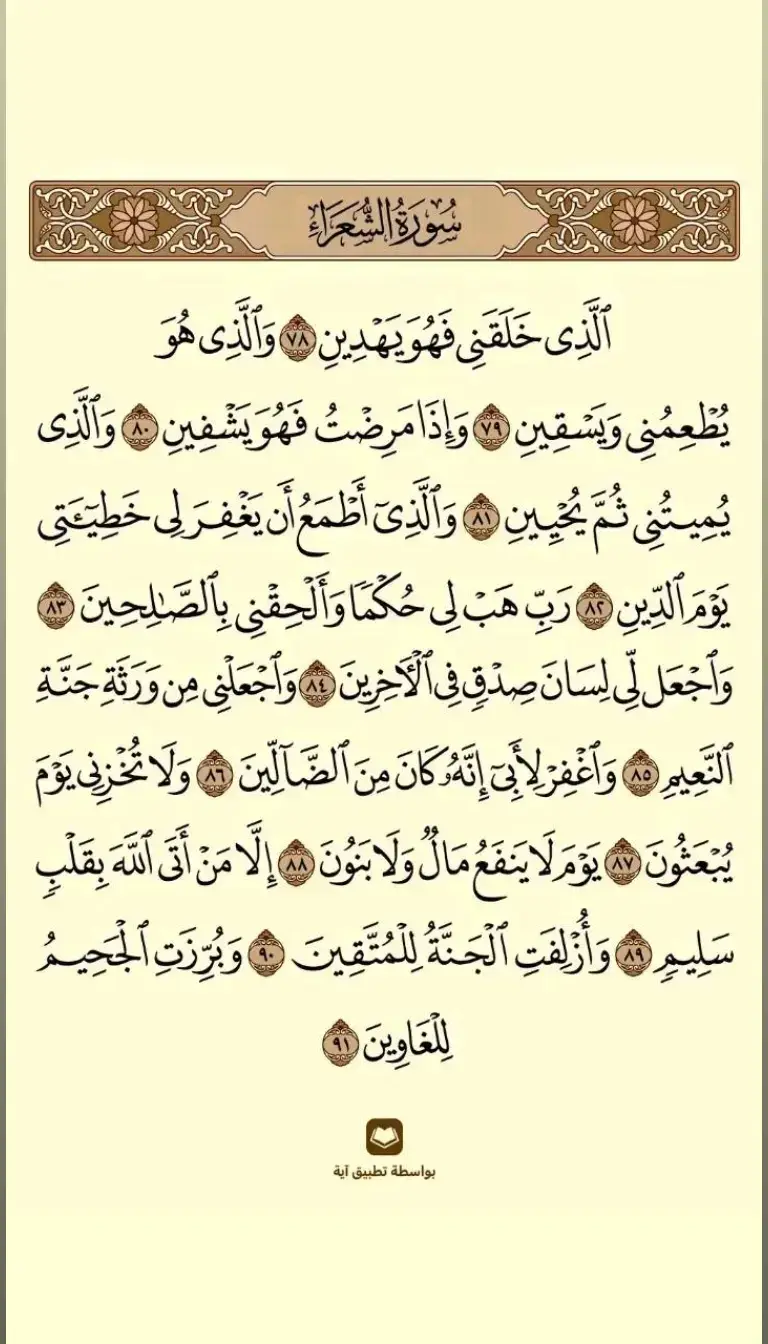 سُورَةُ الشُّعَرَاءِ
ٱلَّذِى خَلَقَنِى فَهُوَ يَهْدِينِ ٧٨ وَٱلَّذِى هُوَ
يُطْعِمُنِى وَيَسْقِينِ ٧٩ وَإِذَا مَرِضْتُ فَهُوَ يَشْفِينِ ٨٠ وَٱلَّذِى
يُمِيتُنِى ثُمَّ يُحْيِينِ ٨١ وَٱلَّذِىٓ أَطْمَعُ أَن يَغْفِرَ لِى خَطِيٓـَٔتِى
يَوْمَ ٱلدِّينِ ٨٢ رَبِّ هَبْ لِى حُكْمًا وَأَلْحِقْنِى بِٱلصَّـٰلِحِينَ ٨٣
وَٱجْعَل لِّى لِسَانَ صِدْقٍ فِى ٱلْـَٔاخِرِينَ ٨٤ وَٱجْعَلْنِى مِن وَرَثَةِ جَنَّةِ
ٱلنَّعِيمِ ٨٥ وَٱغْفِرْ لِأَبِىٓ إِنَّهُۥ كَانَ مِنَ ٱلضَّآلِّينَ ٨٦ وَلَا تُخْزِنِى يَوْمَ
يُبْعَثُونَ ٨٧ يَوْمَ لَا يَنفَعُ مَالٌ وَلَا بَنُونَ ٨٨ إِلَّا مَنْ أَتَى ٱللَّهَ بِقَلْبٍ
سَلِيمٍ ٨٩ وَأُزْلِفَتِ ٱلْجَنَّةُ لِلْمُتَّقِينَ ٩٠ وَبُرِّزَتِ ٱلْجَحِيمُ
لِلْغَاوِينَ ٩١
بواسطة تطبيق آية